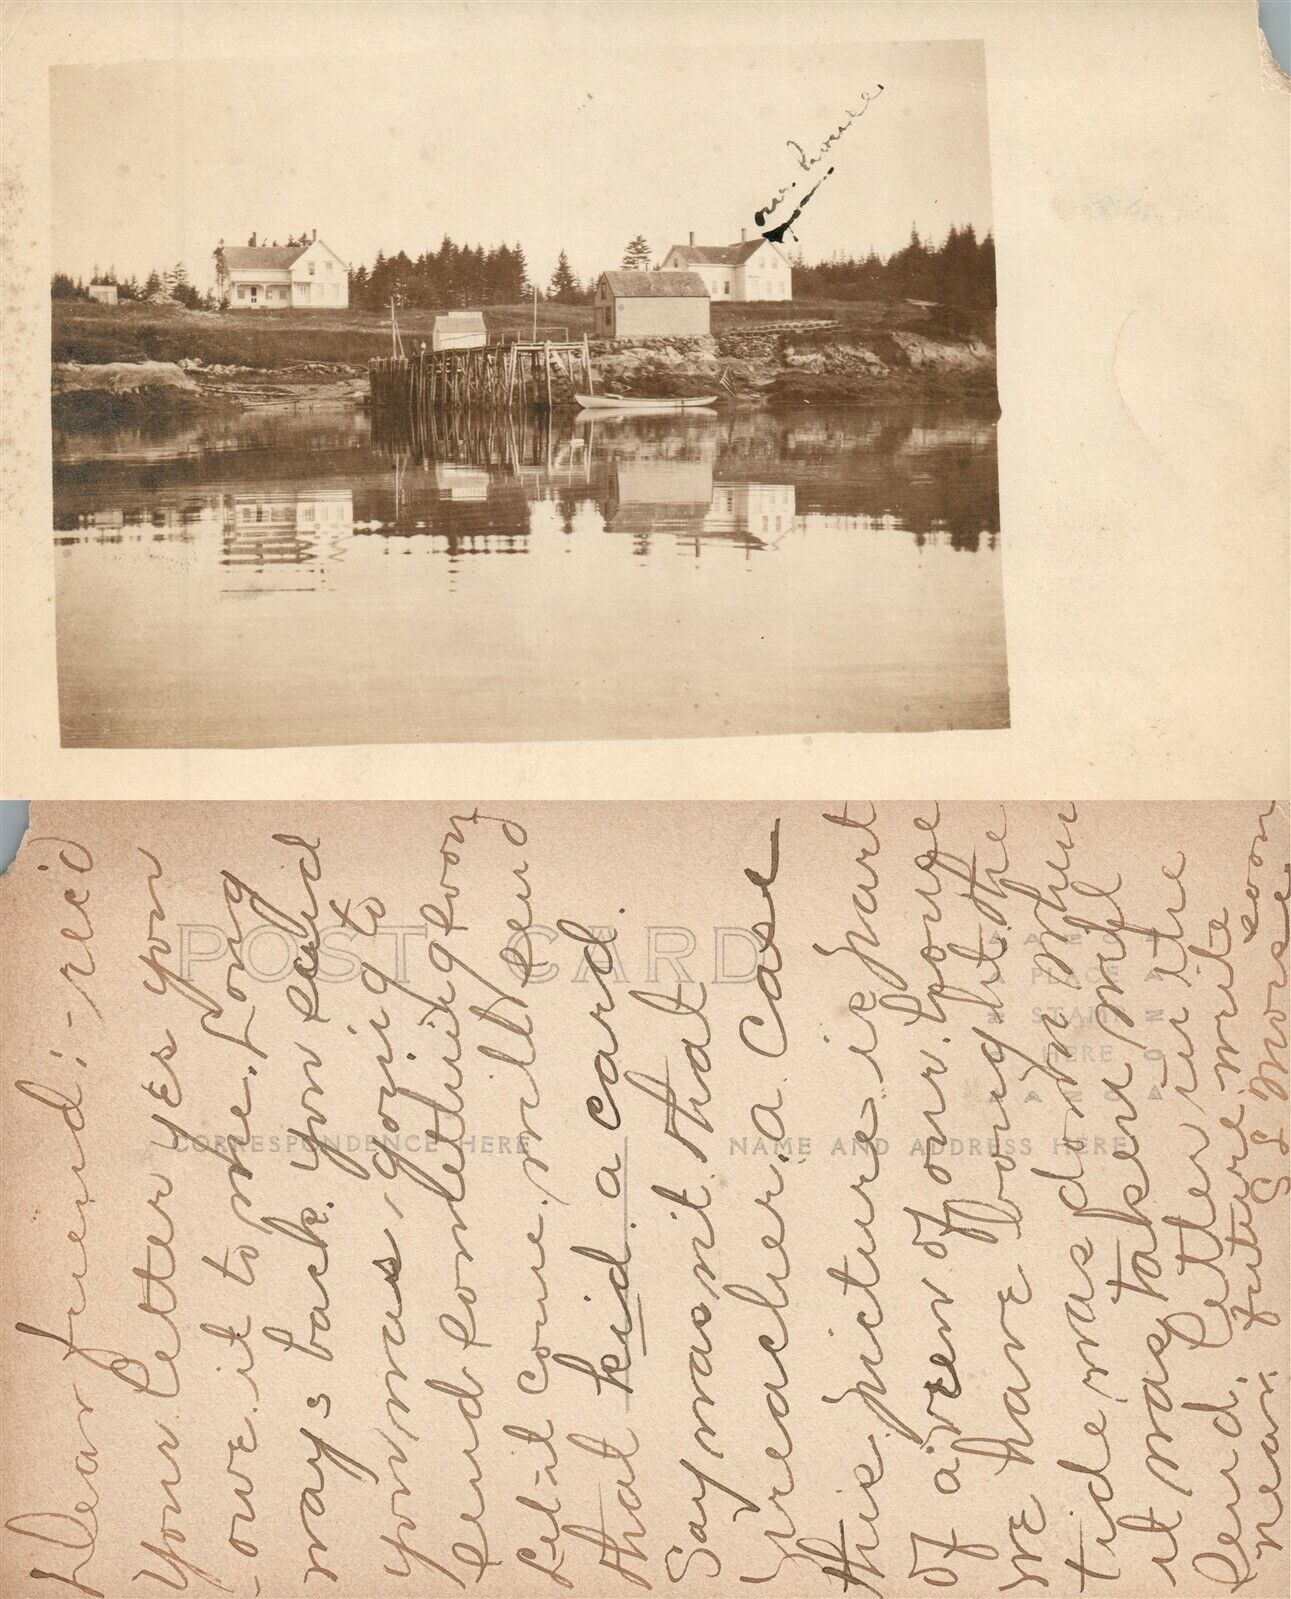 our house
POST CARD
CORRESPONDENCE HERE
NAME AND ADDRESS HERE
PLACE
STAMP
HERE
AZO
Dear friend:- rec'd
your letter yes you
owe it to me. Long
ways back. you said
you was going to
send something good
Let-it come, will send
that kid. a card.
Say wasn't that
preacher a case
this picture is part
of a view of our house
we have bought the
tide was down when
it was taken will
send. letter in the
near future write
soon
S L Morse